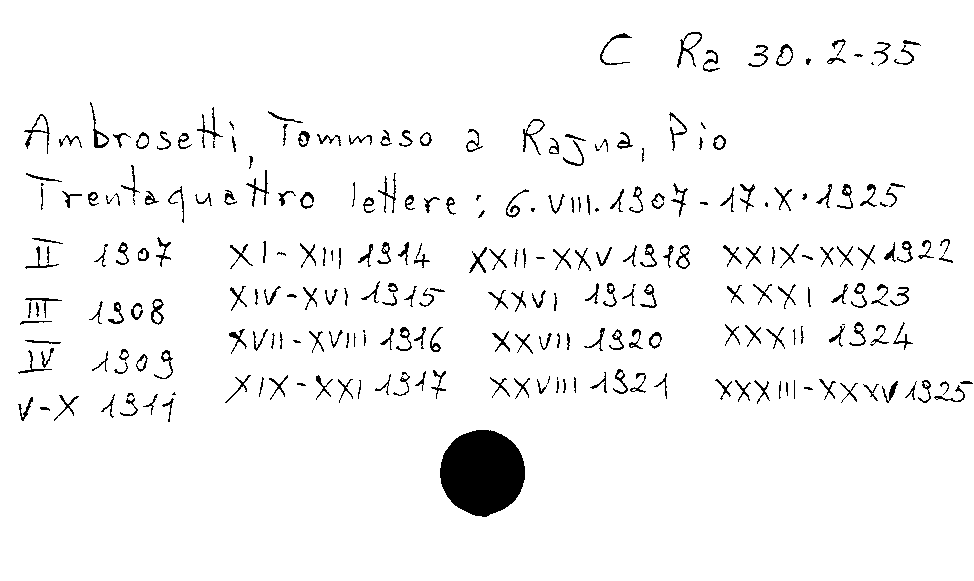 C Ra 30.2-35
Ambrosetti, Tommaso a Rajna, Pio
Trentaquattro lettere: 6.VIII.1907-17.X.1925
II 1907 XI-XIII 1914 XXII-XXV 1918 XXIX-XXX 1922
III 1908 XIV-XVI 1915 XXVI 1919 XXXI 1923
IV 1909 XVII-XVIII 1916 XXVII 1920 XXXII 1924
V-X 1911 XIX-XXI 1917 XXVIII 1921 XXXIII-XXXV 1925